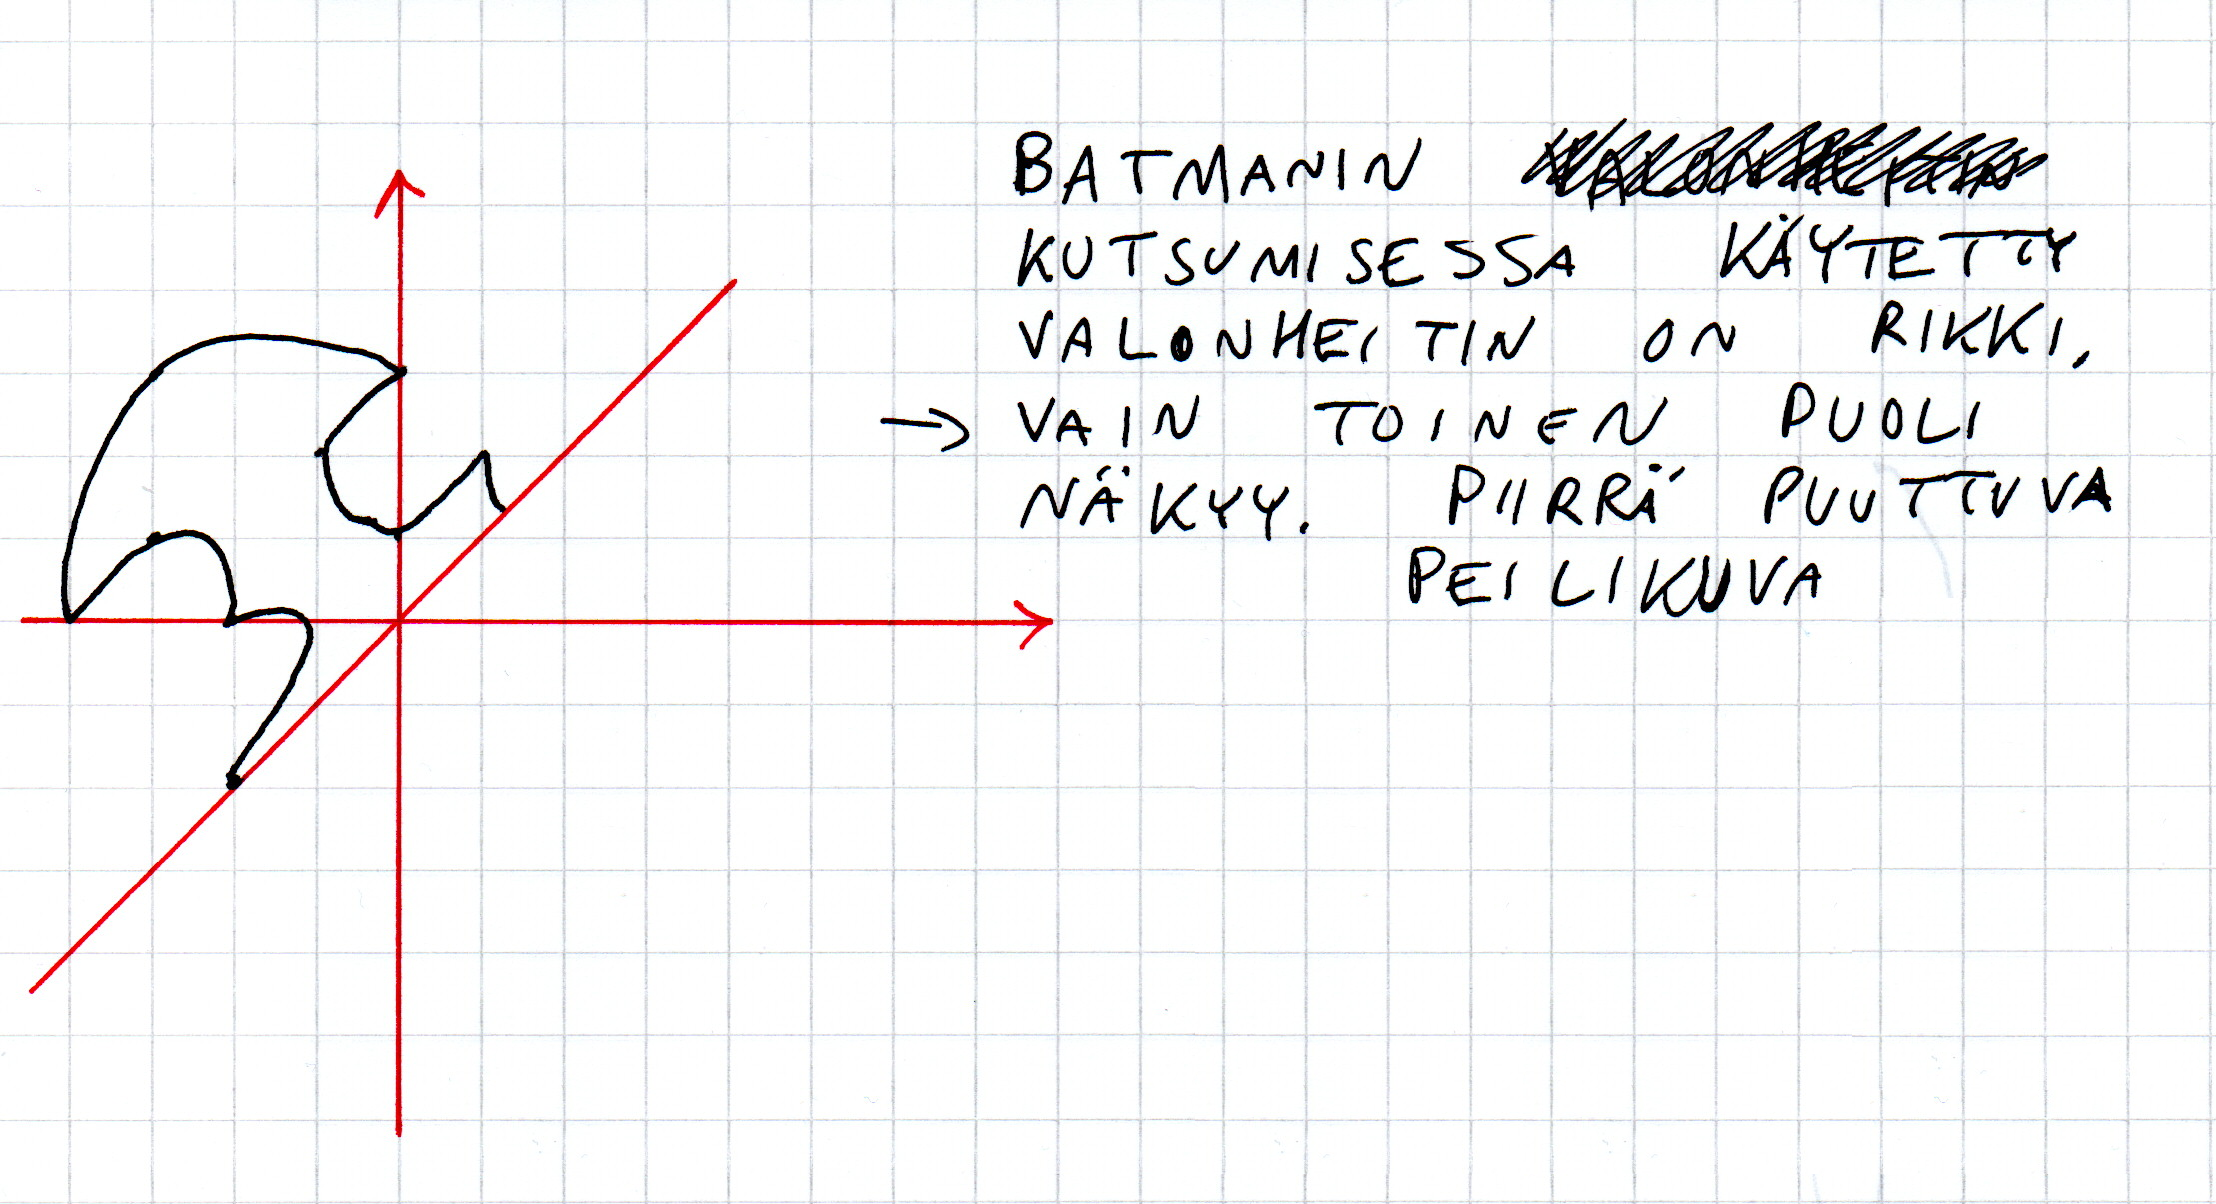 BATMANIN
KUTSUMISESSA KÄYTETTY
VALONHEITIN ON RIKKI.
→ VAIN TOINEN PUOLI
NÄKYY. PIIRRÄ PUUTTUVA
PEILIKUVA